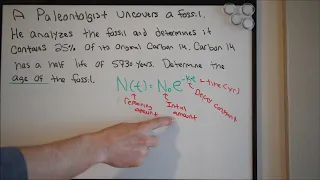 A Paleontologist Uncovers a fossil.
He analyzes the fossil and determines it
contains 25% of its original Carbon 14. Carbon 14
has a half life of 5730 years. Determine the
age of the fossil.
N(t) = N₀e^-kt ← time (yr)
remaining amount
Initial amount
Decay constant